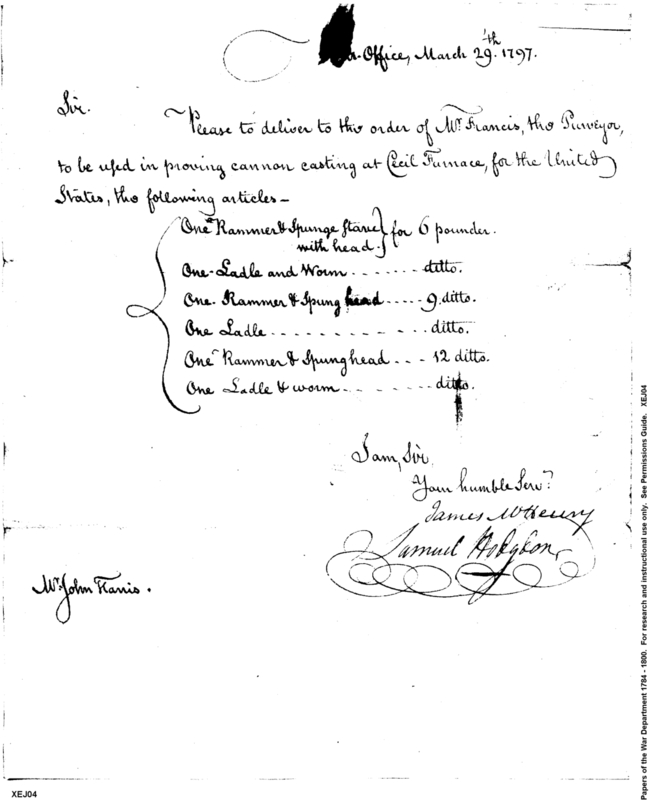 Office, March 29th. 1797.
Sir.
Please to deliver to the order of Mr. Francis, the Purveyor,
to be used in proving cannon casting at Cecil Furnace, for the United
States, the following articles –
One Rammer & Spunge Stave } for 6 pounder.
with head.
One Ladle and Worm . . . . . . . ditto.
One Rammer & Spung head ..... 9. ditto.
One Ladle . . . . . . . . . . . . ditto.
One Rammer & Spunghead . . . 12 ditto.
One Ladle & worm . . . . . . . . ditto.
I am, Sir,
Your humble Servt.
James McHenry
Samuel Hodgdon
Mr. John Harris.
XEJ04
Papers of the War Department 1784 - 1800. For research and instructional use only. See Permissions Guide. XEJ04